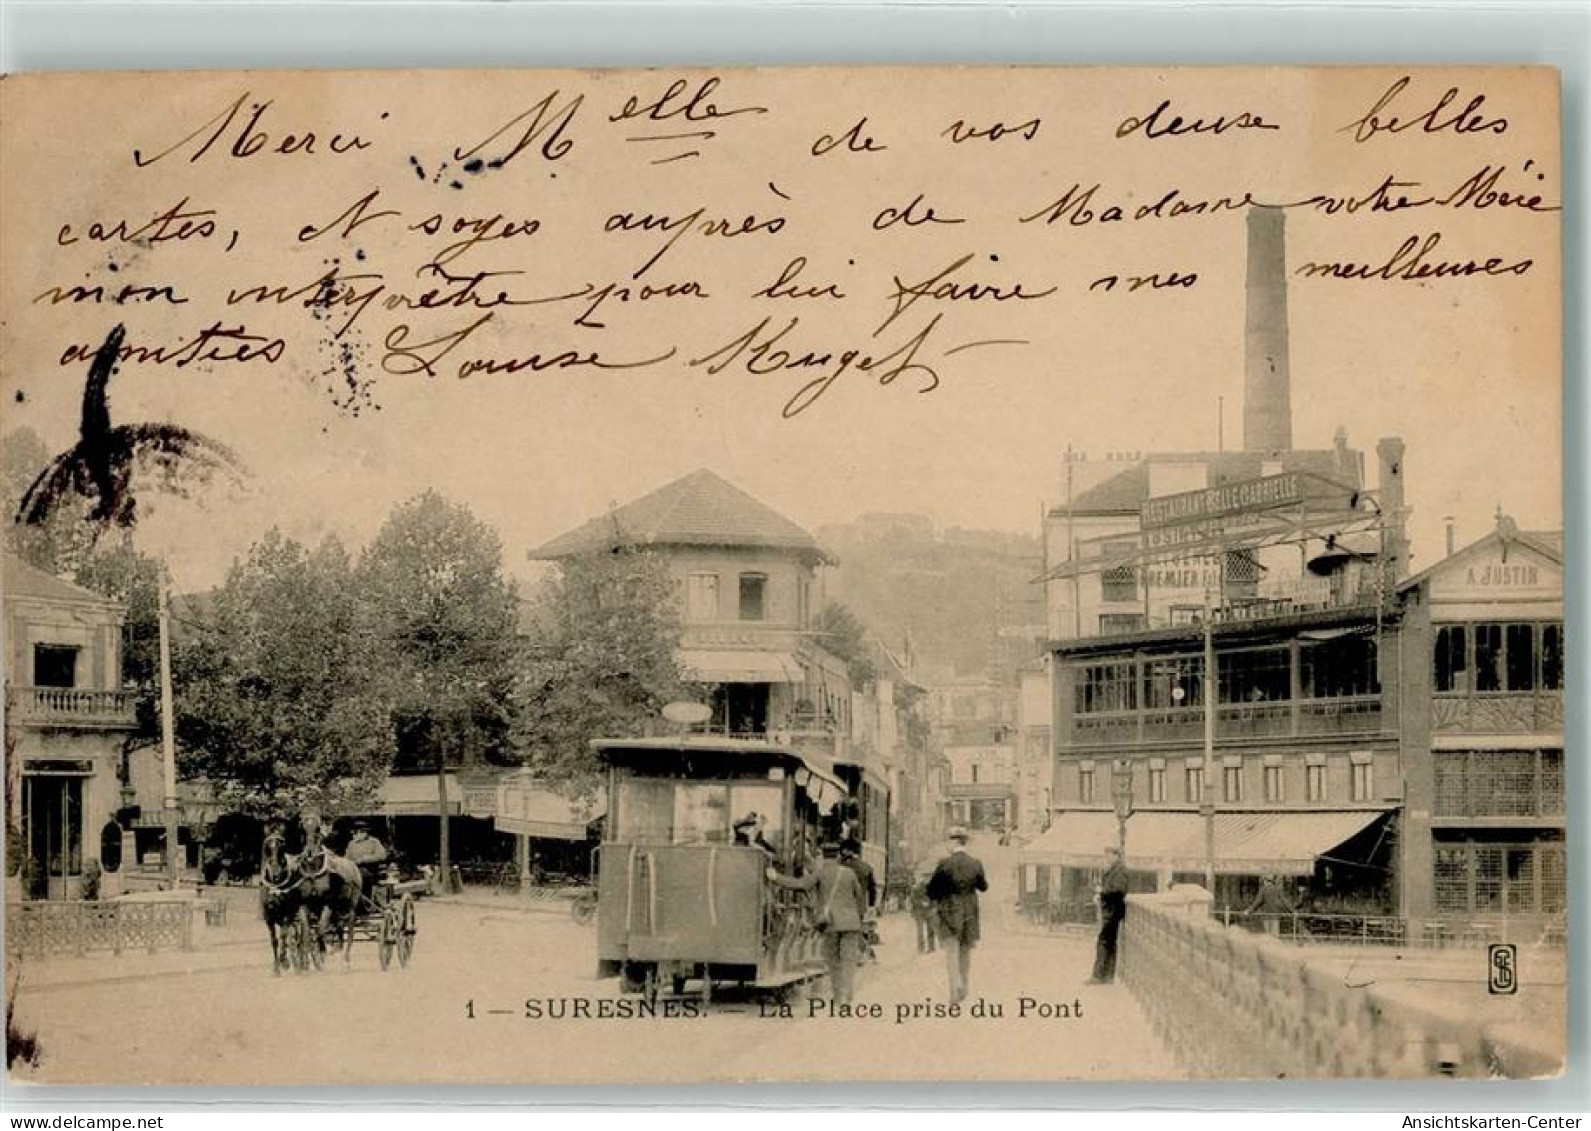 Merci Melle de vos deux belles
cartes, et soyez auprès de Madame votre Mère
mon interprète pour lui faire mes meilleures
amitiés Louise Kugel
RESTAURANT BELLE GABRIELLE
PREMIER
A. JUSTIN
1 — SURESNES. — La Place prise du Pont
Ansichtskarten-Center